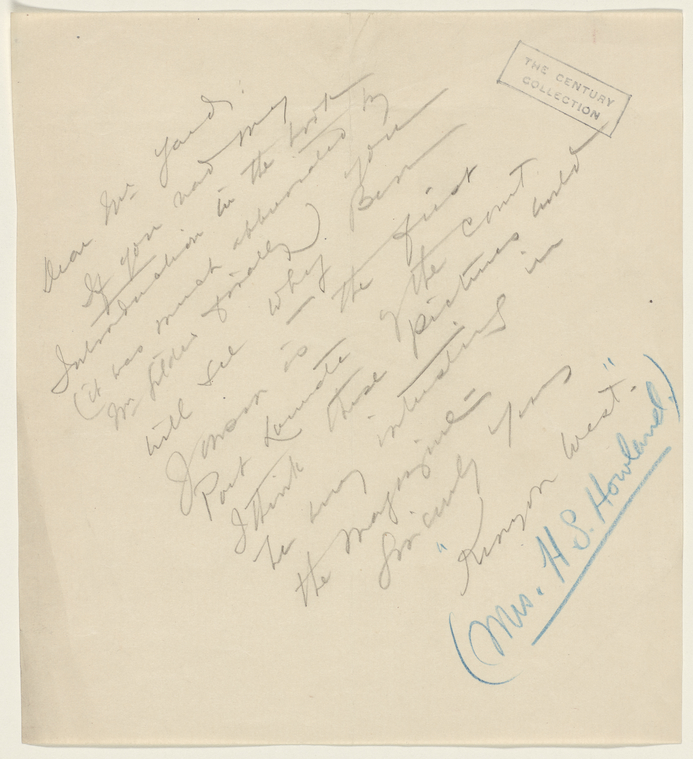 THE CENTURY
COLLECTION
Dear Mr
If you read my
Introduction in the book
(it was much abbreviated by
Mr Gilder finally) you
will see why Ben
Jonson is the first
Poet Laureate of the Court.
I think these pictures would
be very interesting in
the Magazine —
Sincerely Yours
"Kenyon West."
(Mrs. H. S. Howland.)